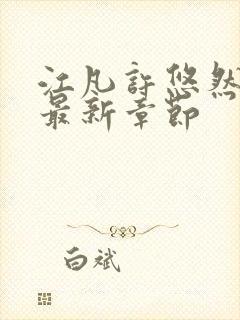 江凡许悠然
最新章节
白斌